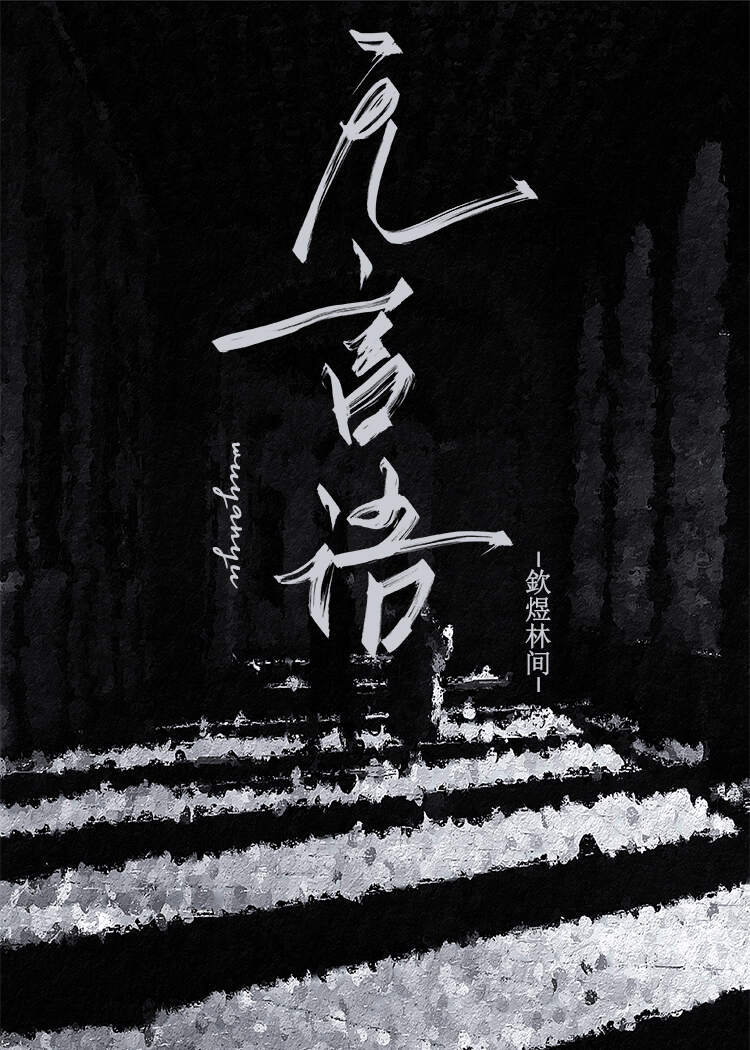 无言语
wuyanyu
-欽煜林间-